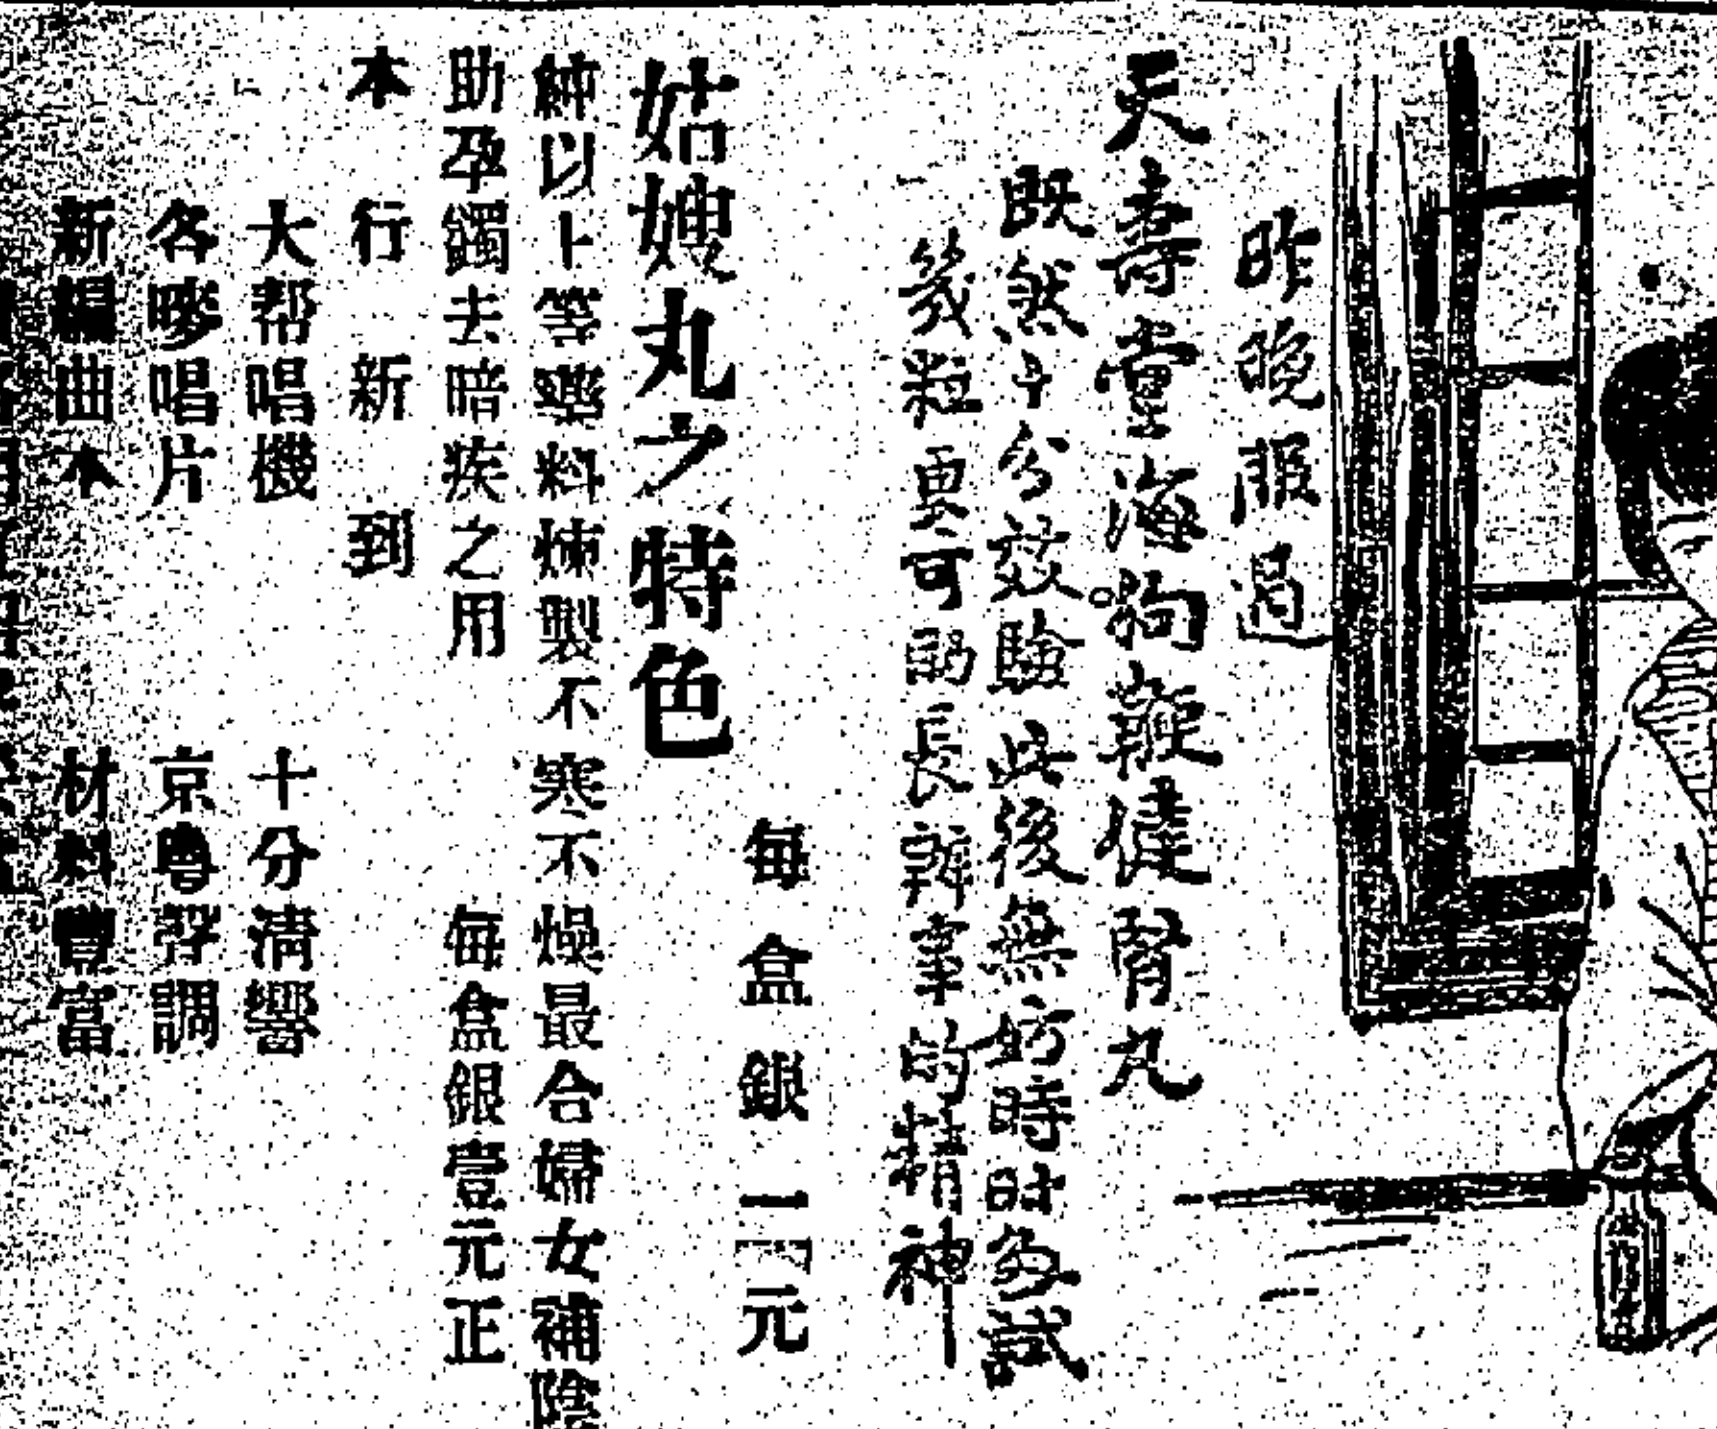 昨晚服過
天壽堂海狗鞭健腎丸
既然十分效驗此後無妨時時多試
幾粒更可助長辦事的精神
每盒銀一元
姑嫂丸之特色
純以上等藥料煉製不寒不燥最合婦女補陰
助孕蠲去暗疾之用 每盒銀壹元正
本行新到
大帮唱機 十分清響
各嘜唱片 京粵聲調
新編曲本 材料豐富